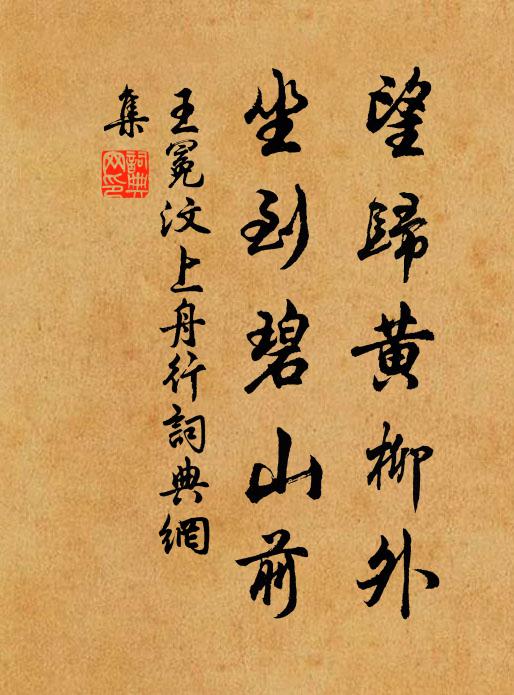 望歸黃柳外
坐到碧山前
王冕汶上舟行詞典網
集
詞典
网印